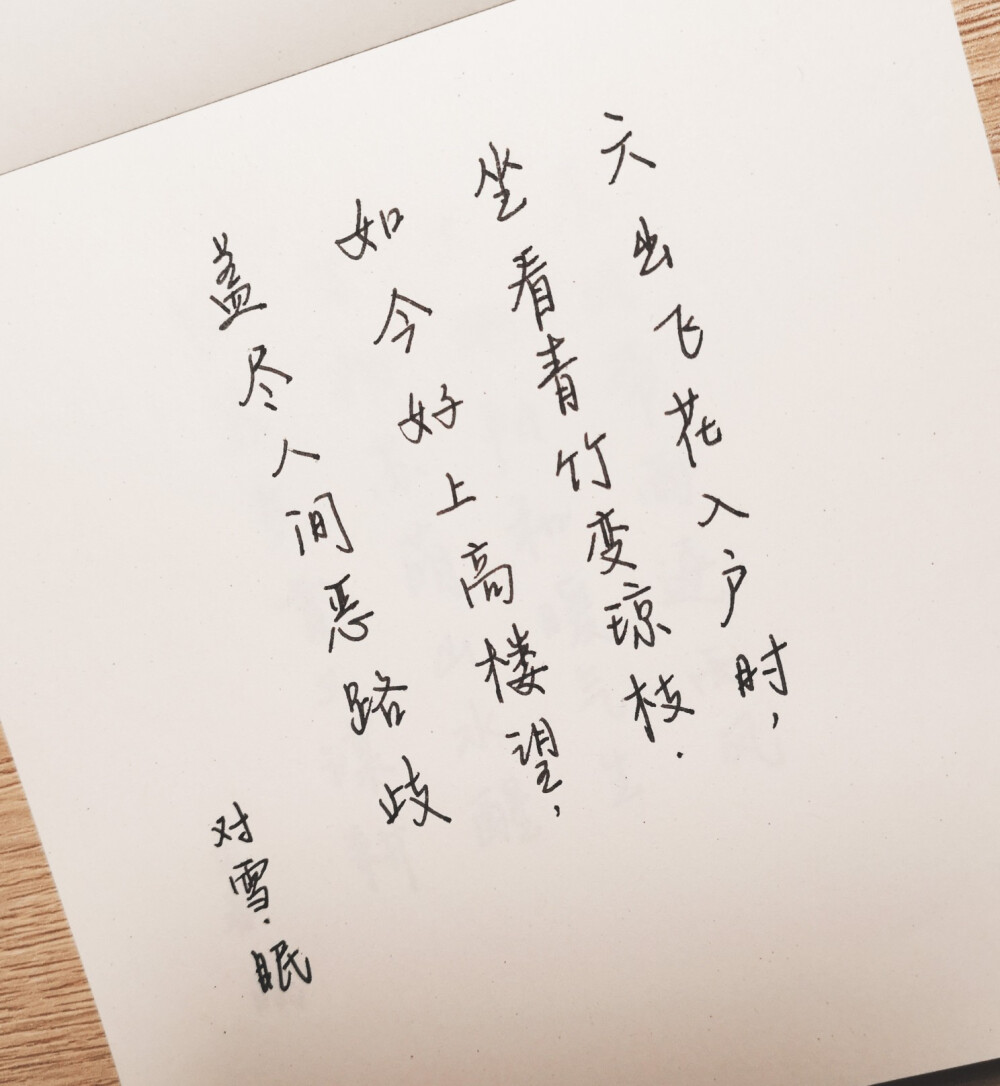 六出飞花入户时，
坐看青竹变琼枝.
如今好上高楼望，
盖尽人间恶路歧
对雪.眠